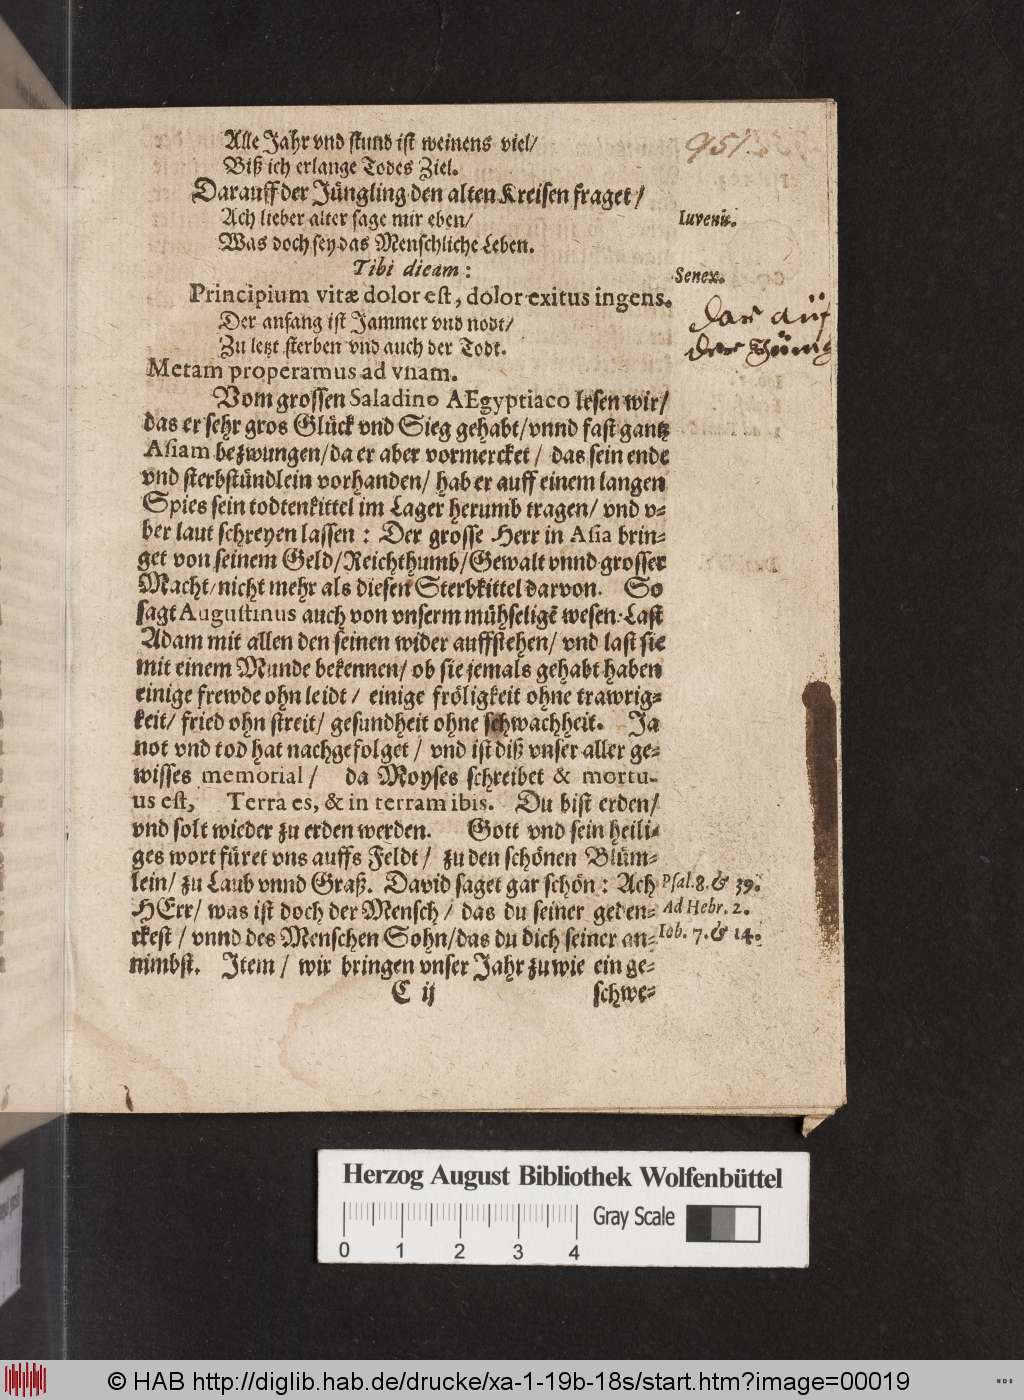 Alle Jahr vnd stund ist weinens viel/
951.
Biß ich erlange Todes Ziel.
Darauff der Jüngling den alten Kreisen fraget/
Ach lieber alter sage mir eben/
Iuvenis.
Was doch sey das Menschliche Leben.
Tibi dicam:
Senex.
Principium vitæ dolor est, dolor exitus ingens.
Der anfang ist Jammer vnd nodt/
Zu letzt sterben vnd auch der Todt.
Metam properamus ad vnam.
Vom grossen Saladino AEgyptiaco lesen wir/
das er sehr gros Glück vnd Sieg gehabt/vnnd fast gantz
Asiam bezwungen/da er aber vormercket/ das sein ende
vnd sterbstündlein vorhanden/ hab er auff einem langen
Spies sein todtenkittel im Lager herumb tragen/ vnd v-
ber laut schreyen lassen: Der grosse Herr in Asia brin-
get von seinem Geld/Reichthumb/Gewalt vnnd grosser
Macht/nicht mehr als diesen Sterbkittel darvon. So
sagt Augustinus auch von vnserm mühseligē wesen: Last
Adam mit allen den seinen wider auffstehen/ vnd last sie
mit einem Munde bekennen/ ob sie jemals gehabt haben
einige frewde ohn leidt/ einige fröligkeit ohne trawrig-
keit/ fried ohn streit/ gesundheit ohne schwachheit. Ja
not vnd tod hat nachgefolget/ vnd ist diß vnser aller ge-
wisses memorial/ da Moyses schreibet & mortu-
us est, Terra es, & in terram ibis. Du bist erden/
vnd solt wieder zu erden werden. Gott vnd sein heili-
ges wort füret vns auffs Feldt/ zu den schönen Blüm-
lein/ zu Laub vnnd Graß. David saget gar schön: Ach
Psal. 8. & 39.
HErr/ was ist doch der Mensch/ das du seiner geden-
Ad Hebr. 2.
ckest/ vnnd des Menschen Sohn/das du dich seiner an-
Iob. 7. & 14.
nimbst. Item/ wir bringen vnser Jahr zu wie ein ge-
C ij
schwe-
Herzog August Bibliothek Wolfenbüttel
0 1 2 3 4
Gray Scale
© HAB http://diglib.hab.de/drucke/xa-1-19b-18s/start.htm?image=00019